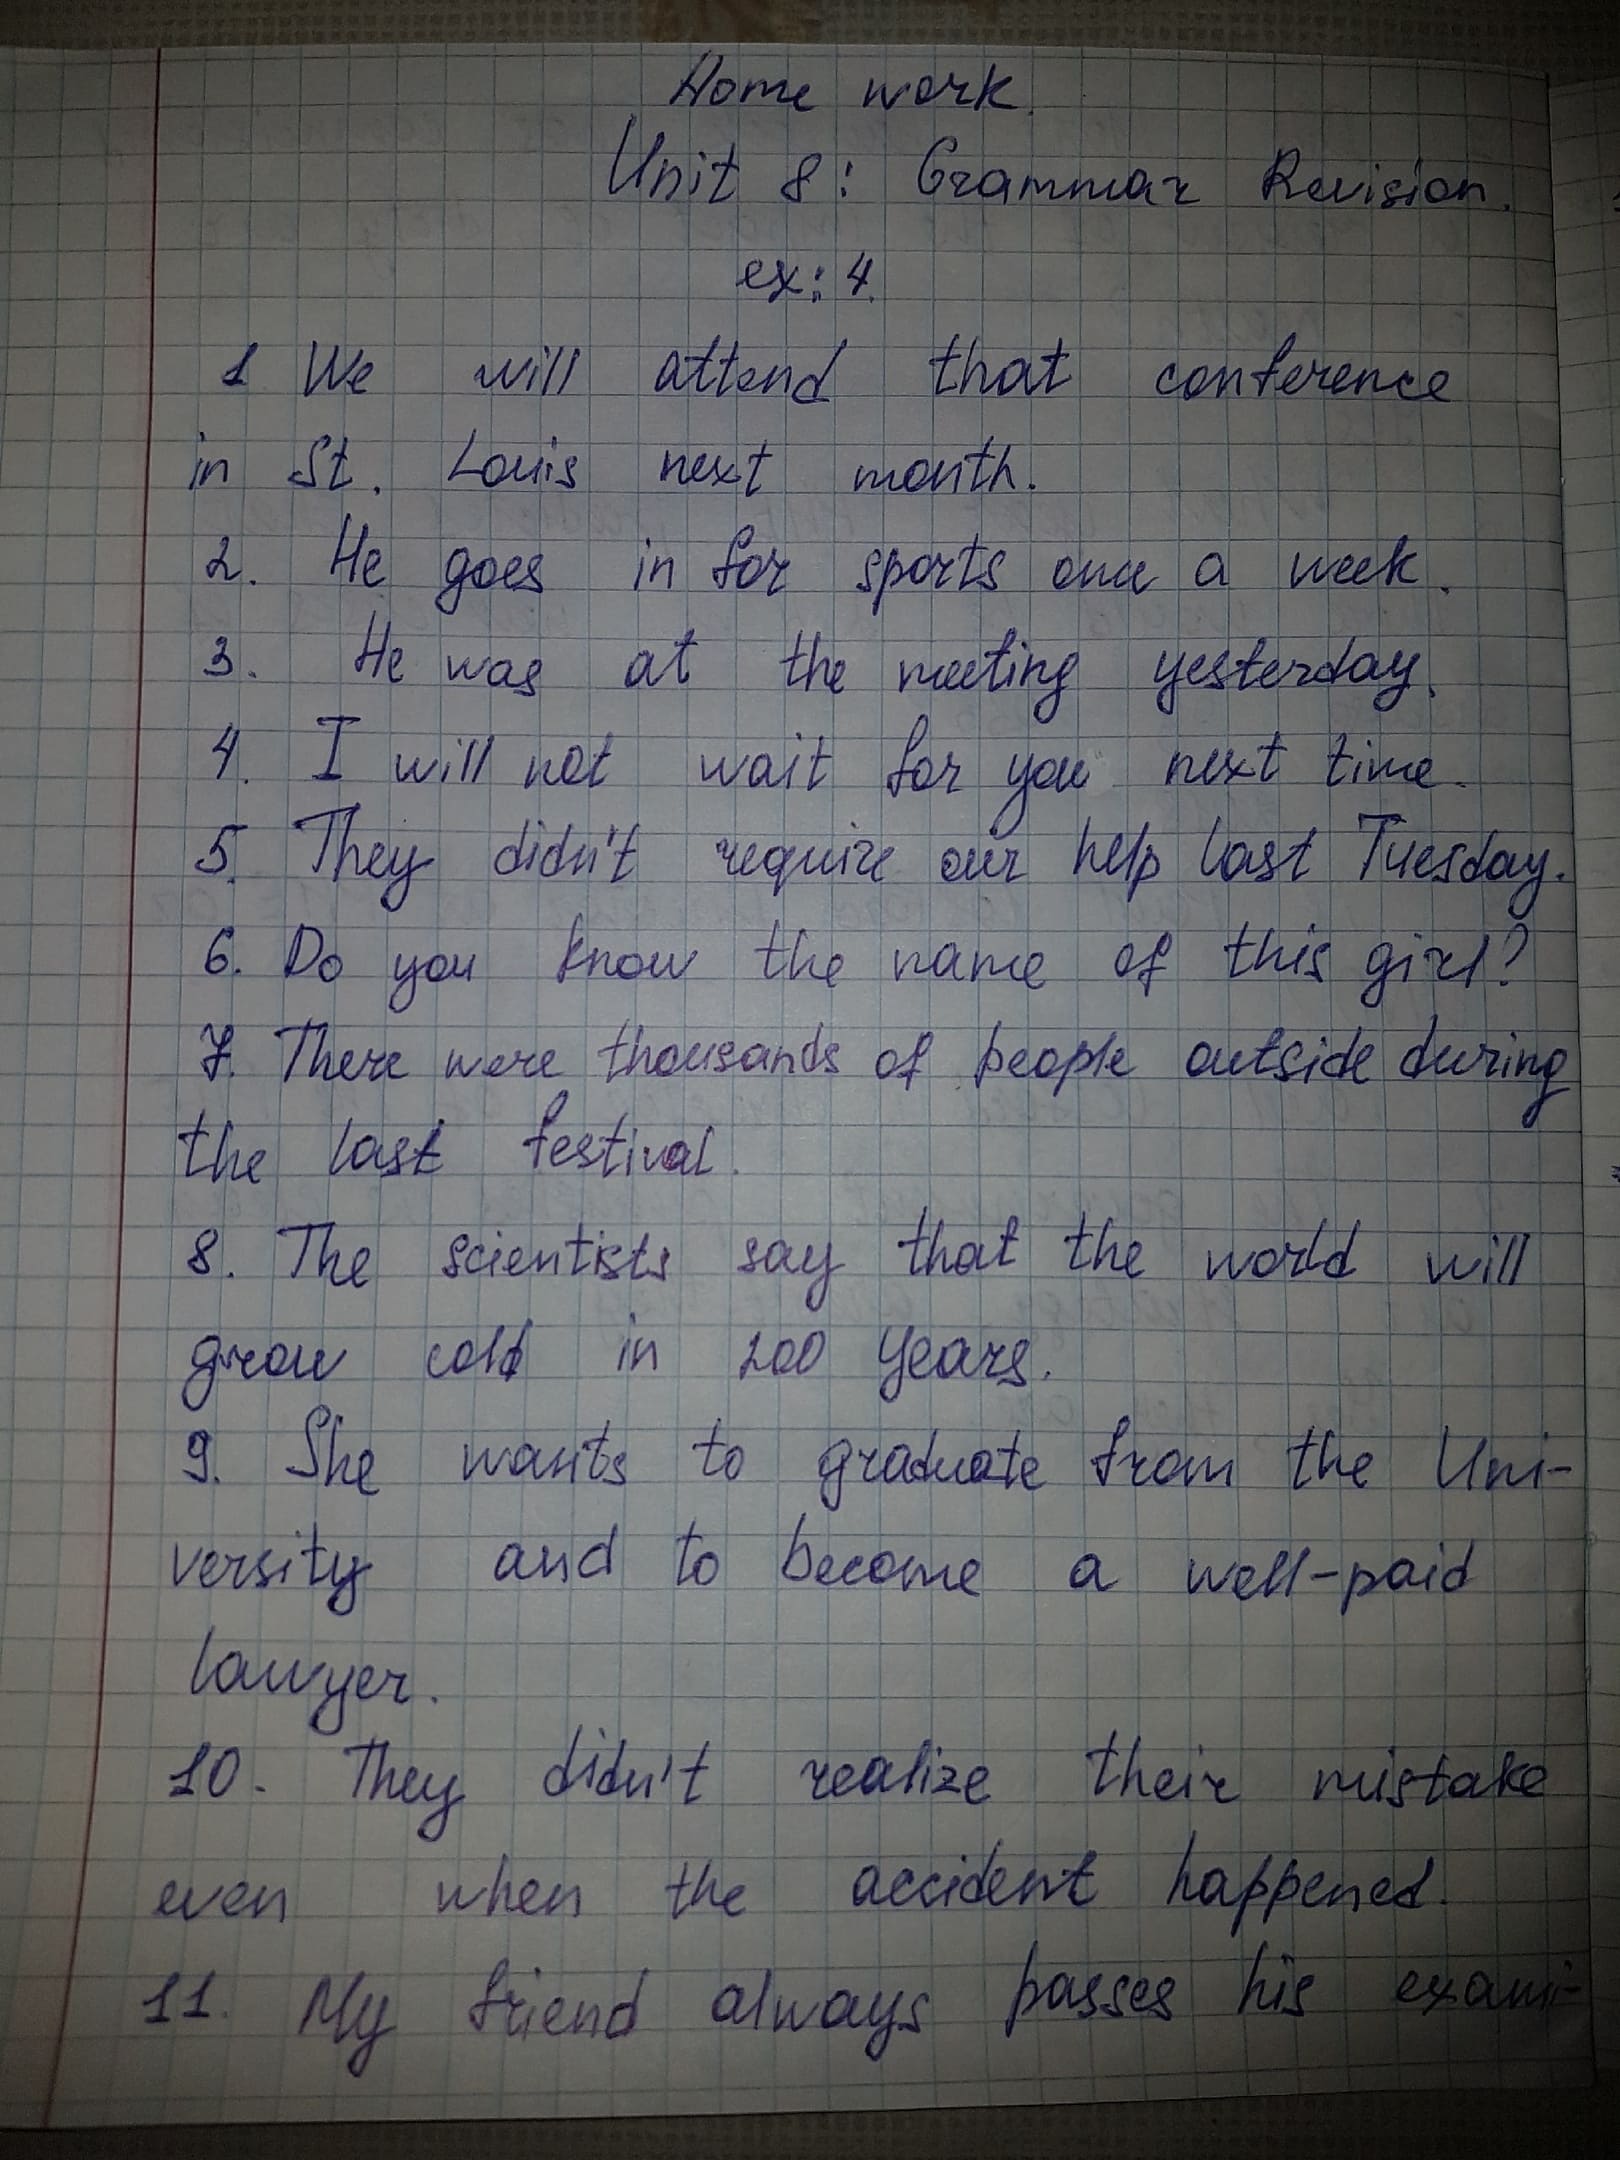 Home work.
Unit 8: Grammar Revision.
ex: 4.
1 We will attend that conference
in St. Louis next month.
2. He goes in for sports once a week.
3. He was at the meeting yesterday.
4. I will not wait for you next time.
5. They didn't require our help last Tuesday.
6. Do you know the name of this girl?
7. There were thousands of people outside during
the last festival.
8. The scientists say that the world will
grow cold in 200 years.
9. She wants to graduate from the Uni-
versity and to become a well-paid
lawyer.
10. They didn't realize their mistake
even when the accident happened.
11. My friend always passes his exami-